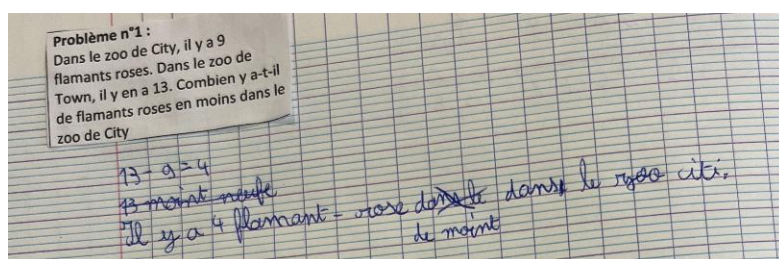 Problème n°1 :
Dans le zoo de City, il y a 9
flamants roses. Dans le zoo de
Town, il y en a 13. Combien y a-t-il
de flamants roses en moins dans le
zoo de City
13 - 9 = 4
13 moint neufe
Il y a 4 flamant - rose dans le dans le zoo citi.
de moint